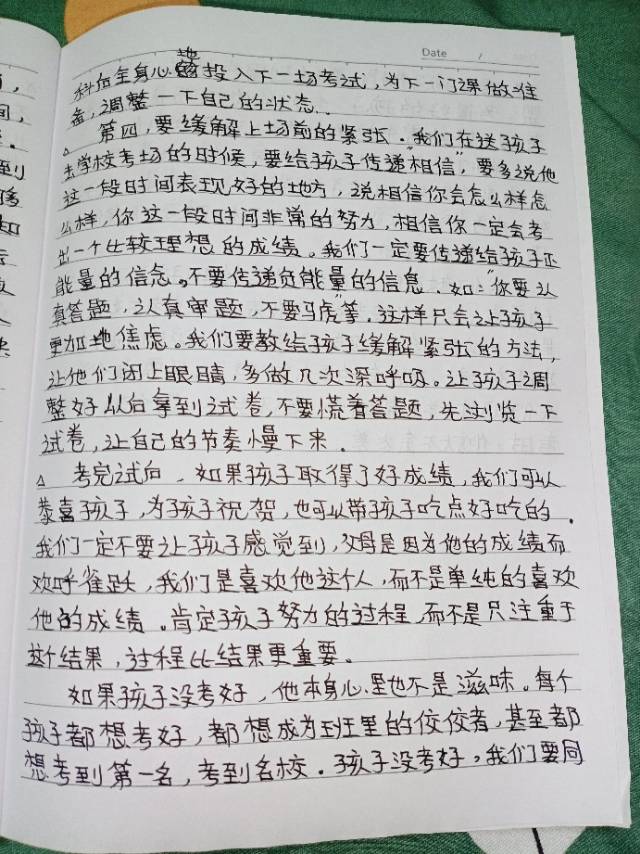 Date /
科后全身心地投入下一场考试,为下一门课做准
备,调整一下自己的状态.
△ 第四,要缓解上场前的紧张.我们在送孩子
去学校考场的时候,要给孩子传递相信",要多说他
这一段时间表现好的地方,说相信你会怎么样怎
么样,你这一段时间非常的努力,相信你一定会考
出一个比较理想的成绩。我们一定要传递给孩子正
能量的信念。不要传递负能量的信息.如:"你要认
真答题,认真审题,不要马虎"等.这样只会让孩子
更加地焦虑。我们要教给孩子缓解紧张的方法,
让他们闭上眼睛,多做几次深呼吸。让孩子调
整好以后拿到试卷,不要慌着答题,先浏览一下
试卷,让自己的节奏慢下来.
△ 考完试后.如果孩子取得了好成绩,我们可以
恭喜孩子,为孩子祝贺,也可以带孩子吃点好吃的.
我们一定不要让孩子感觉到,父母是因为他的成绩而
欢呼雀跃,我们是喜欢他这个人,而不是单纯的喜欢
他的成绩。肯定孩子努力的过程,而不是只注重于
这个结果,过程比结果更重要。
如果孩子没考好,他本身心里也不是滋味。每个
孩子都想考好,都想成为班里的佼佼者,甚至都
想考到第一名,考到名校.孩子没考好,我们要同